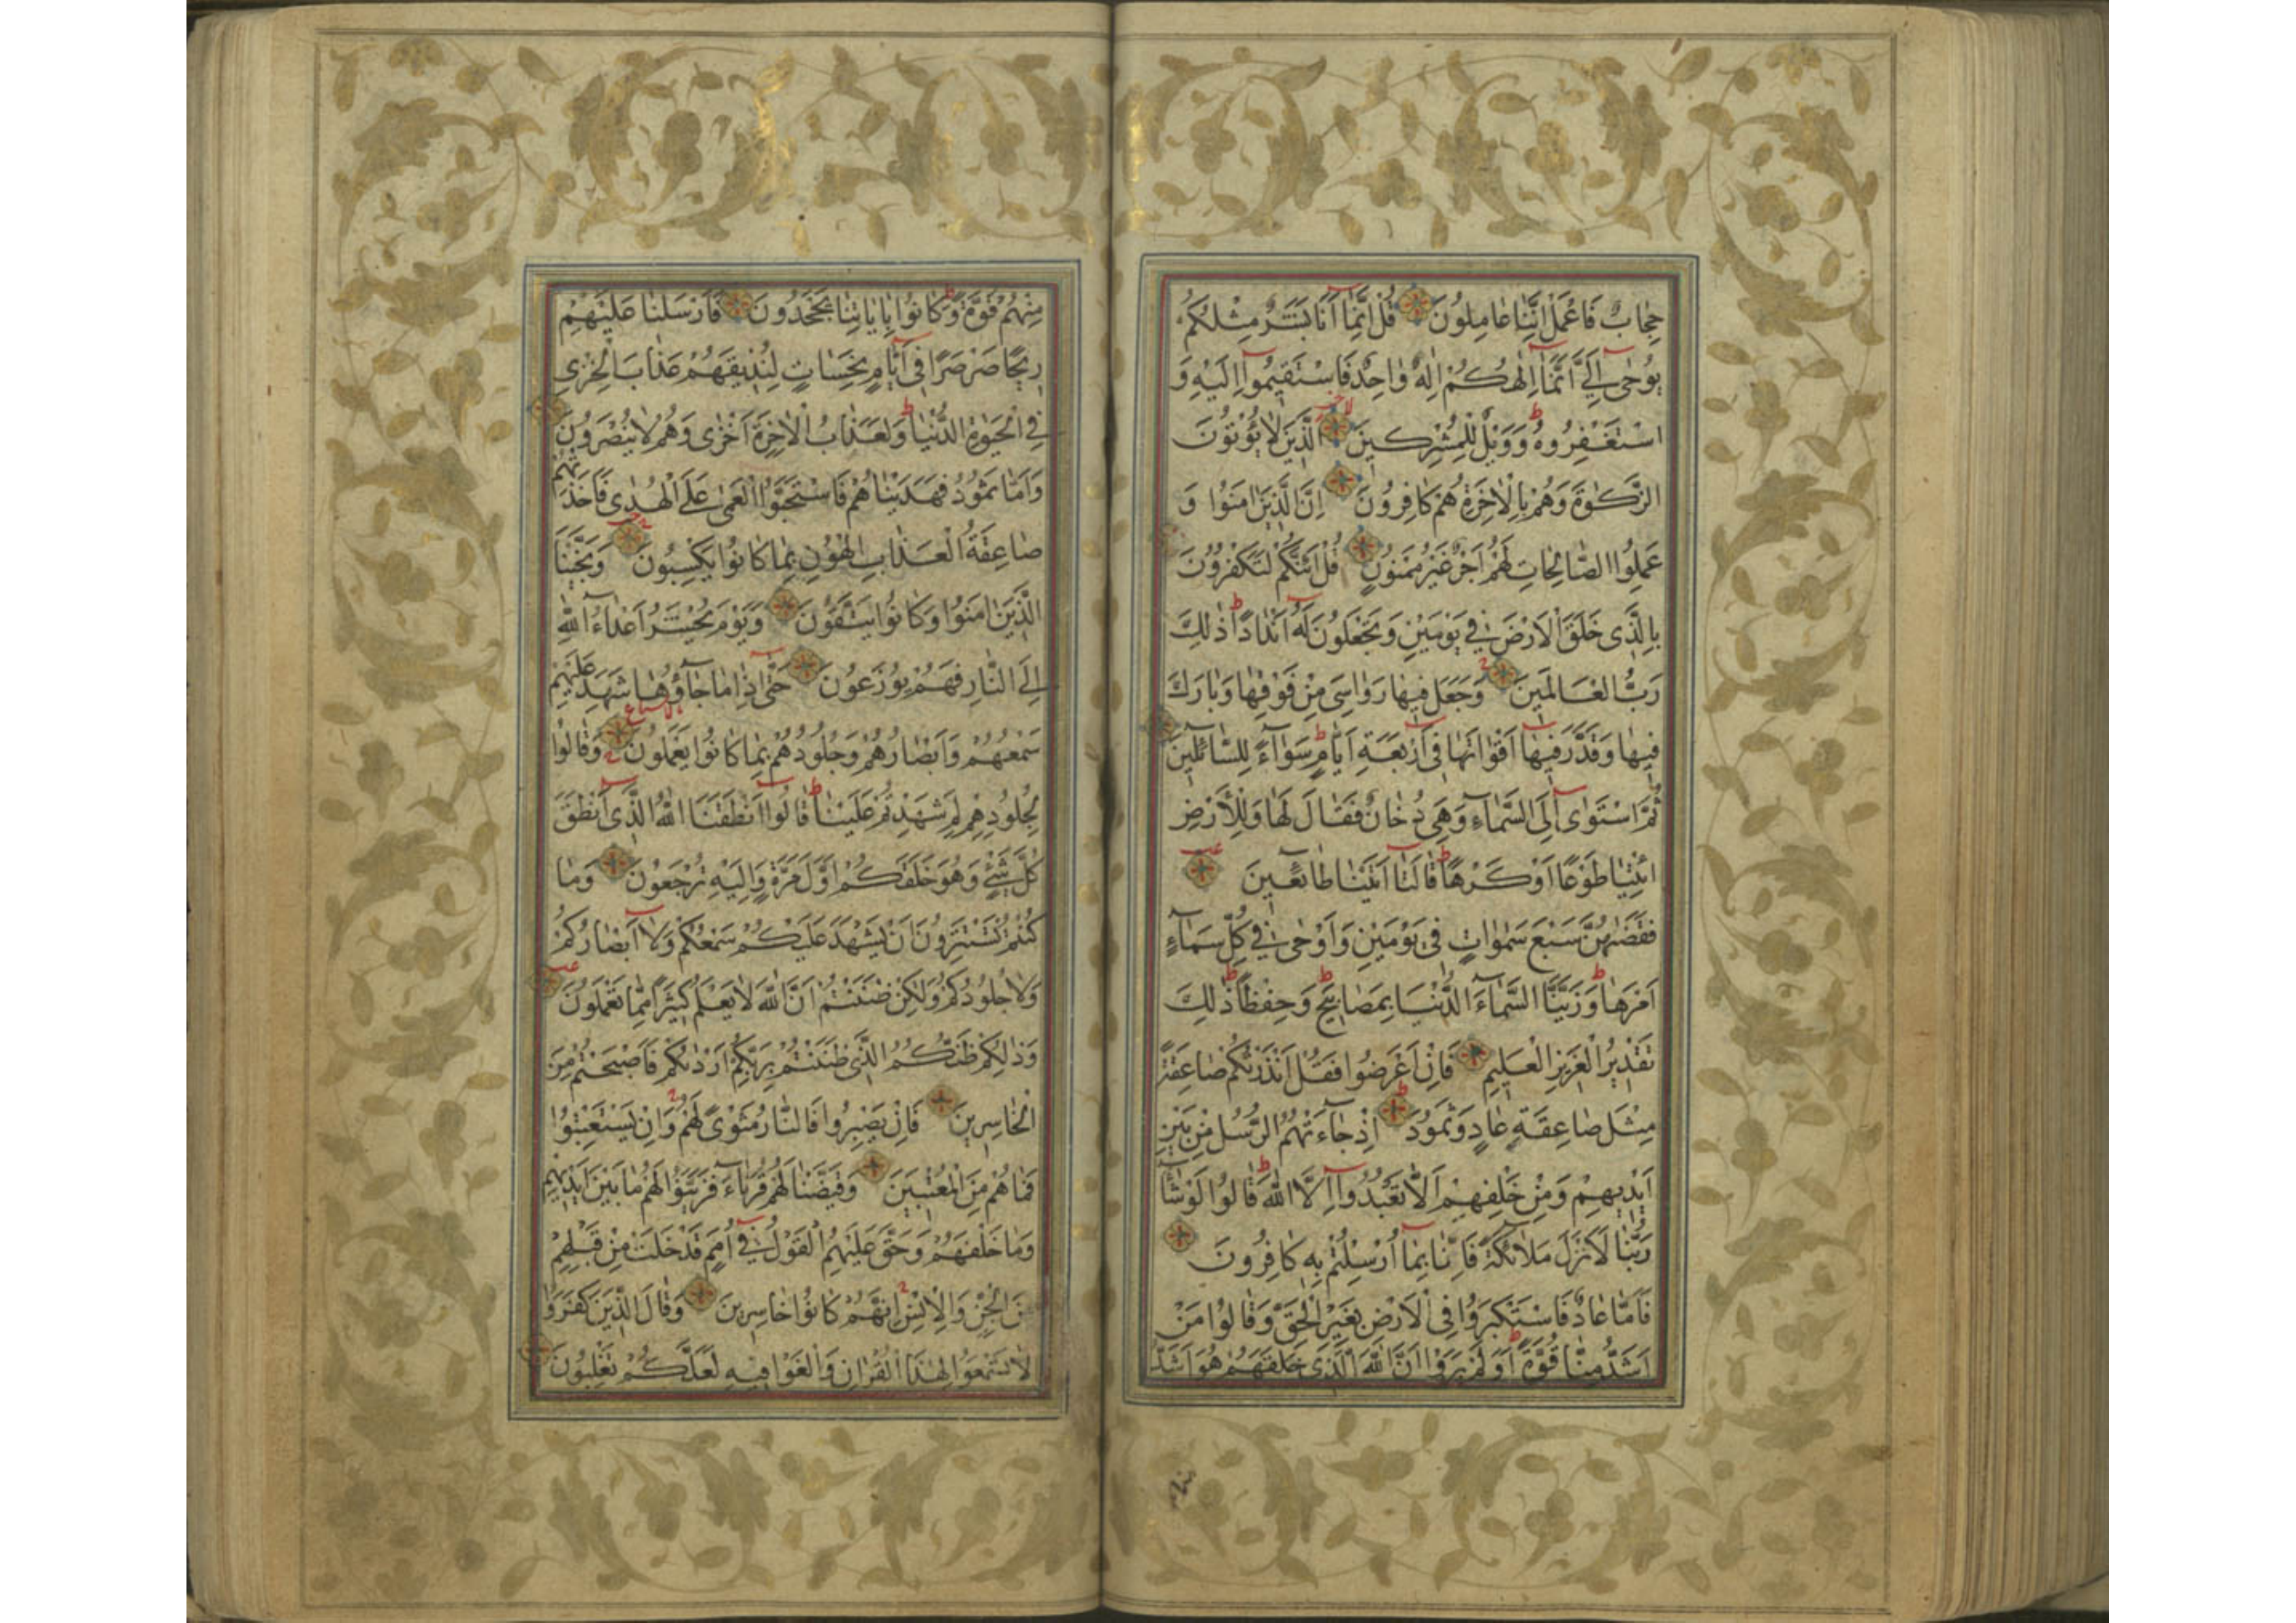 حِجابٌ فَاعْمَلْ اِنَّنا عامِلُونَ قُلْ اِنَّمآ اَنَا بَشَرٌ مِثْلُكُمْ
يُوحٰى اِلَيَّ اَنَّمآ اِلٰهُكُمْ اِلٰهٌ واحِدٌ فَاسْتَقيمُوآ اِلَيْهِ وَ
اسْتَغْفِرُوهُ وَوَيْلٌ لِلْمُشْرِكينَ الَّذينَ لا يُؤْتُونَ
الزَّكٰوةَ وَهُمْ بِالْاٰخِرَةِ هُمْ كافِرُونَ اِنَّ الَّذينَ اٰمَنُوا وَ
عَمِلُوا الصّالِحاتِ لَهُمْ اَجْرٌ غَيْرُ مَمْنُونٍ قُلْ اَئِنَّكُمْ لَتَكْفُرُونَ
بِالَّذي خَلَقَ الْاَرْضَ في يَوْمَيْنِ وَتَجْعَلُونَ لَهُٓ اَنْدادًا ذٰلِكَ
رَبُّ الْعالَمينَ وَجَعَلَ فيها رَواسِيَ مِنْ فَوْقِها وَبارَكَ
فيها وَقَدَّرَ فيهآ اَقْواتَها فيٓ اَرْبَعَةِ اَيّامٍ سَوآءً لِلسّآئِلينَ
ثُمَّ اسْتَوٰىٓ اِلَى السَّمآءِ وَهِيَ دُخانٌ فَقالَ لَها وَلِلْاَرْضِ
ائْتِيا طَوْعًا اَوْ كَرْهًا قالَتآ اَتَيْنا طآئِعينَ
فَقَضٰهُنَّ سَبْعَ سَمٰواتٍ في يَوْمَيْنِ وَاَوْحٰى في كُلِّ سَمآءٍ
اَمْرَها وَزَيَّنَّا السَّمآءَ الدُّنْيا بِمَصابيحَ وَحِفْظًا ذٰلِكَ
تَقْديرُ الْعَزيزِ الْعَليمِ فَاِنْ اَعْرَضُوا فَقُلْ اَنْذَرْتُكُمْ صاعِقَةً
مِثْلَ صاعِقَةِ عادٍ وَثَمُودَ اِذْ جآءَتْهُمُ الرُّسُلُ مِنْ بَيْنِ
اَيْديهِمْ وَمِنْ خَلْفِهِمْ اَلّا تَعْبُدُوآ اِلَّا اللّٰهَ قالُوا لَوْ شآءَ
رَبُّنا لَاَنْزَلَ مَلآئِكَةً فَاِنّا بِمآ اُرْسِلْتُمْ بِهِ كافِرُونَ
فَاَمّا عادٌ فَاسْتَكْبَرُوا فِى الْاَرْضِ بِغَيْرِ الْحَقِّ وَقالُوا مَنْ
اَشَدُّ مِنّا قُوَّةً اَوَلَمْ يَرَوْا اَنَّ اللّٰهَ الَّذي خَلَقَهُمْ هُوَ اَشَدُّ
مِنْهُمْ قُوَّةً وَكانُوا بِاٰياتِنا يَجْحَدُونَ فَاَرْسَلْنا عَلَيْهِمْ
ريحًا صَرْصَرًا فيٓ اَيّامٍ نَحِساتٍ لِنُذيقَهُمْ عَذابَ الْخِزْيِ
فِي الْحَيٰوةِ الدُّنْيا وَلَعَذابُ الْاٰخِرَةِ اَخْزٰى وَهُمْ لا يُنْصَرُونَ
وَاَمّا ثَمُودُ فَهَدَيْناهُمْ فَاسْتَحَبُّوا الْعَمٰى عَلَى الْهُدٰى فَاَخَذَتْهُمْ
صاعِقَةُ الْعَذابِ الْهُونِ بِما كانُوا يَكْسِبُونَ وَنَجَّيْنَا
الَّذينَ اٰمَنُوا وَكانُوا يَتَّقُونَ وَيَوْمَ يُحْشَرُ اَعْدآءُ اللّٰهِ
اِلَى النّارِ فَهُمْ يُوزَعُونَ حَتّٰىٓ اِذا ما جآؤُها شَهِدَ عَلَيْهِمْ
سَمْعُهُمْ وَاَبْصارُهُمْ وَجُلُودُهُمْ بِما كانُوا يَعْمَلُونَ وَقالُوا
لِجُلُودِهِمْ لِمَ شَهِدْتُمْ عَلَيْنا قالُوٓا اَنْطَقَنَا اللّٰهُ الَّذيٓ اَنْطَقَ
كُلَّ شَيْءٍ وَهُوَ خَلَقَكُمْ اَوَّلَ مَرَّةٍ وَاِلَيْهِ تُرْجَعُونَ وَما
كُنْتُمْ تَسْتَتِرُونَ اَنْ يَشْهَدَ عَلَيْكُمْ سَمْعُكُمْ وَلآ اَبْصارُكُمْ
وَلا جُلُودُكُمْ وَلٰكِنْ ظَنَنْتُمْ اَنَّ اللّٰهَ لا يَعْلَمُ كَثيرًا مِمّا تَعْمَلُونَ
وَذٰلِكُمْ ظَنُّكُمُ الَّذي ظَنَنْتُمْ بِرَبِّكُمْ اَرْدٰىكُمْ فَاَصْبَحْتُمْ مِنَ
الْخاسِرينَ فَاِنْ يَصْبِرُوا فَالنّارُ مَثْوًى لَهُمْ وَاِنْ يَسْتَعْتِبُوا
فَما هُمْ مِنَ الْمُعْتَبينَ وَقَيَّضْنا لَهُمْ قُرَنآءَ فَزَيَّنُوا لَهُمْ ما بَيْنَ اَيْديهِمْ
وَما خَلْفَهُمْ وَحَقَّ عَلَيْهِمُ الْقَوْلُ فيٓ اُمَمٍ قَدْ خَلَتْ مِنْ قَبْلِهِمْ
مِنَ الْجِنِّ وَالْاِنْسِ اِنَّهُمْ كانُوا خاسِرينَ وَقالَ الَّذينَ كَفَرُوا
لا تَسْمَعُوا لِهٰذَا الْقُرْاٰنِ وَالْغَوْا فيهِ لَعَلَّكُمْ تَغْلِبُونَ